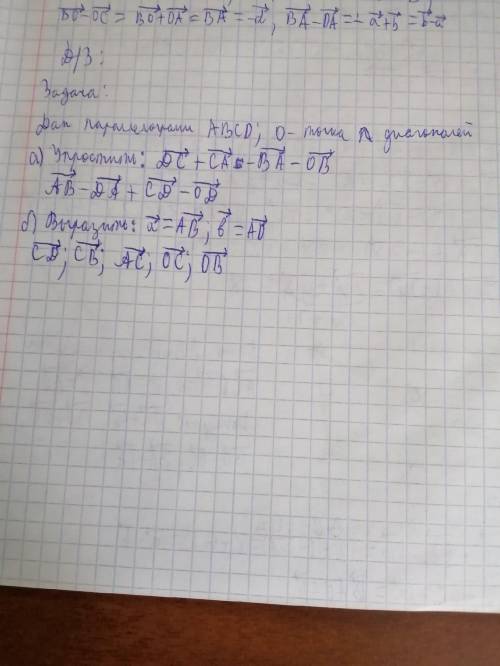 BO-OC = BO+OA = BA = -a, BA-DA = -a+b = b-a
D/З:
Задача:
Дан параллелограмм ABCD; O- точка ∩ диагоналей
а) Упростить: DC + CA - BA - OB
AB - DA + CD - OD
б) Выразить: a = AB; b = AD
CD; CB; AC; OC; OB